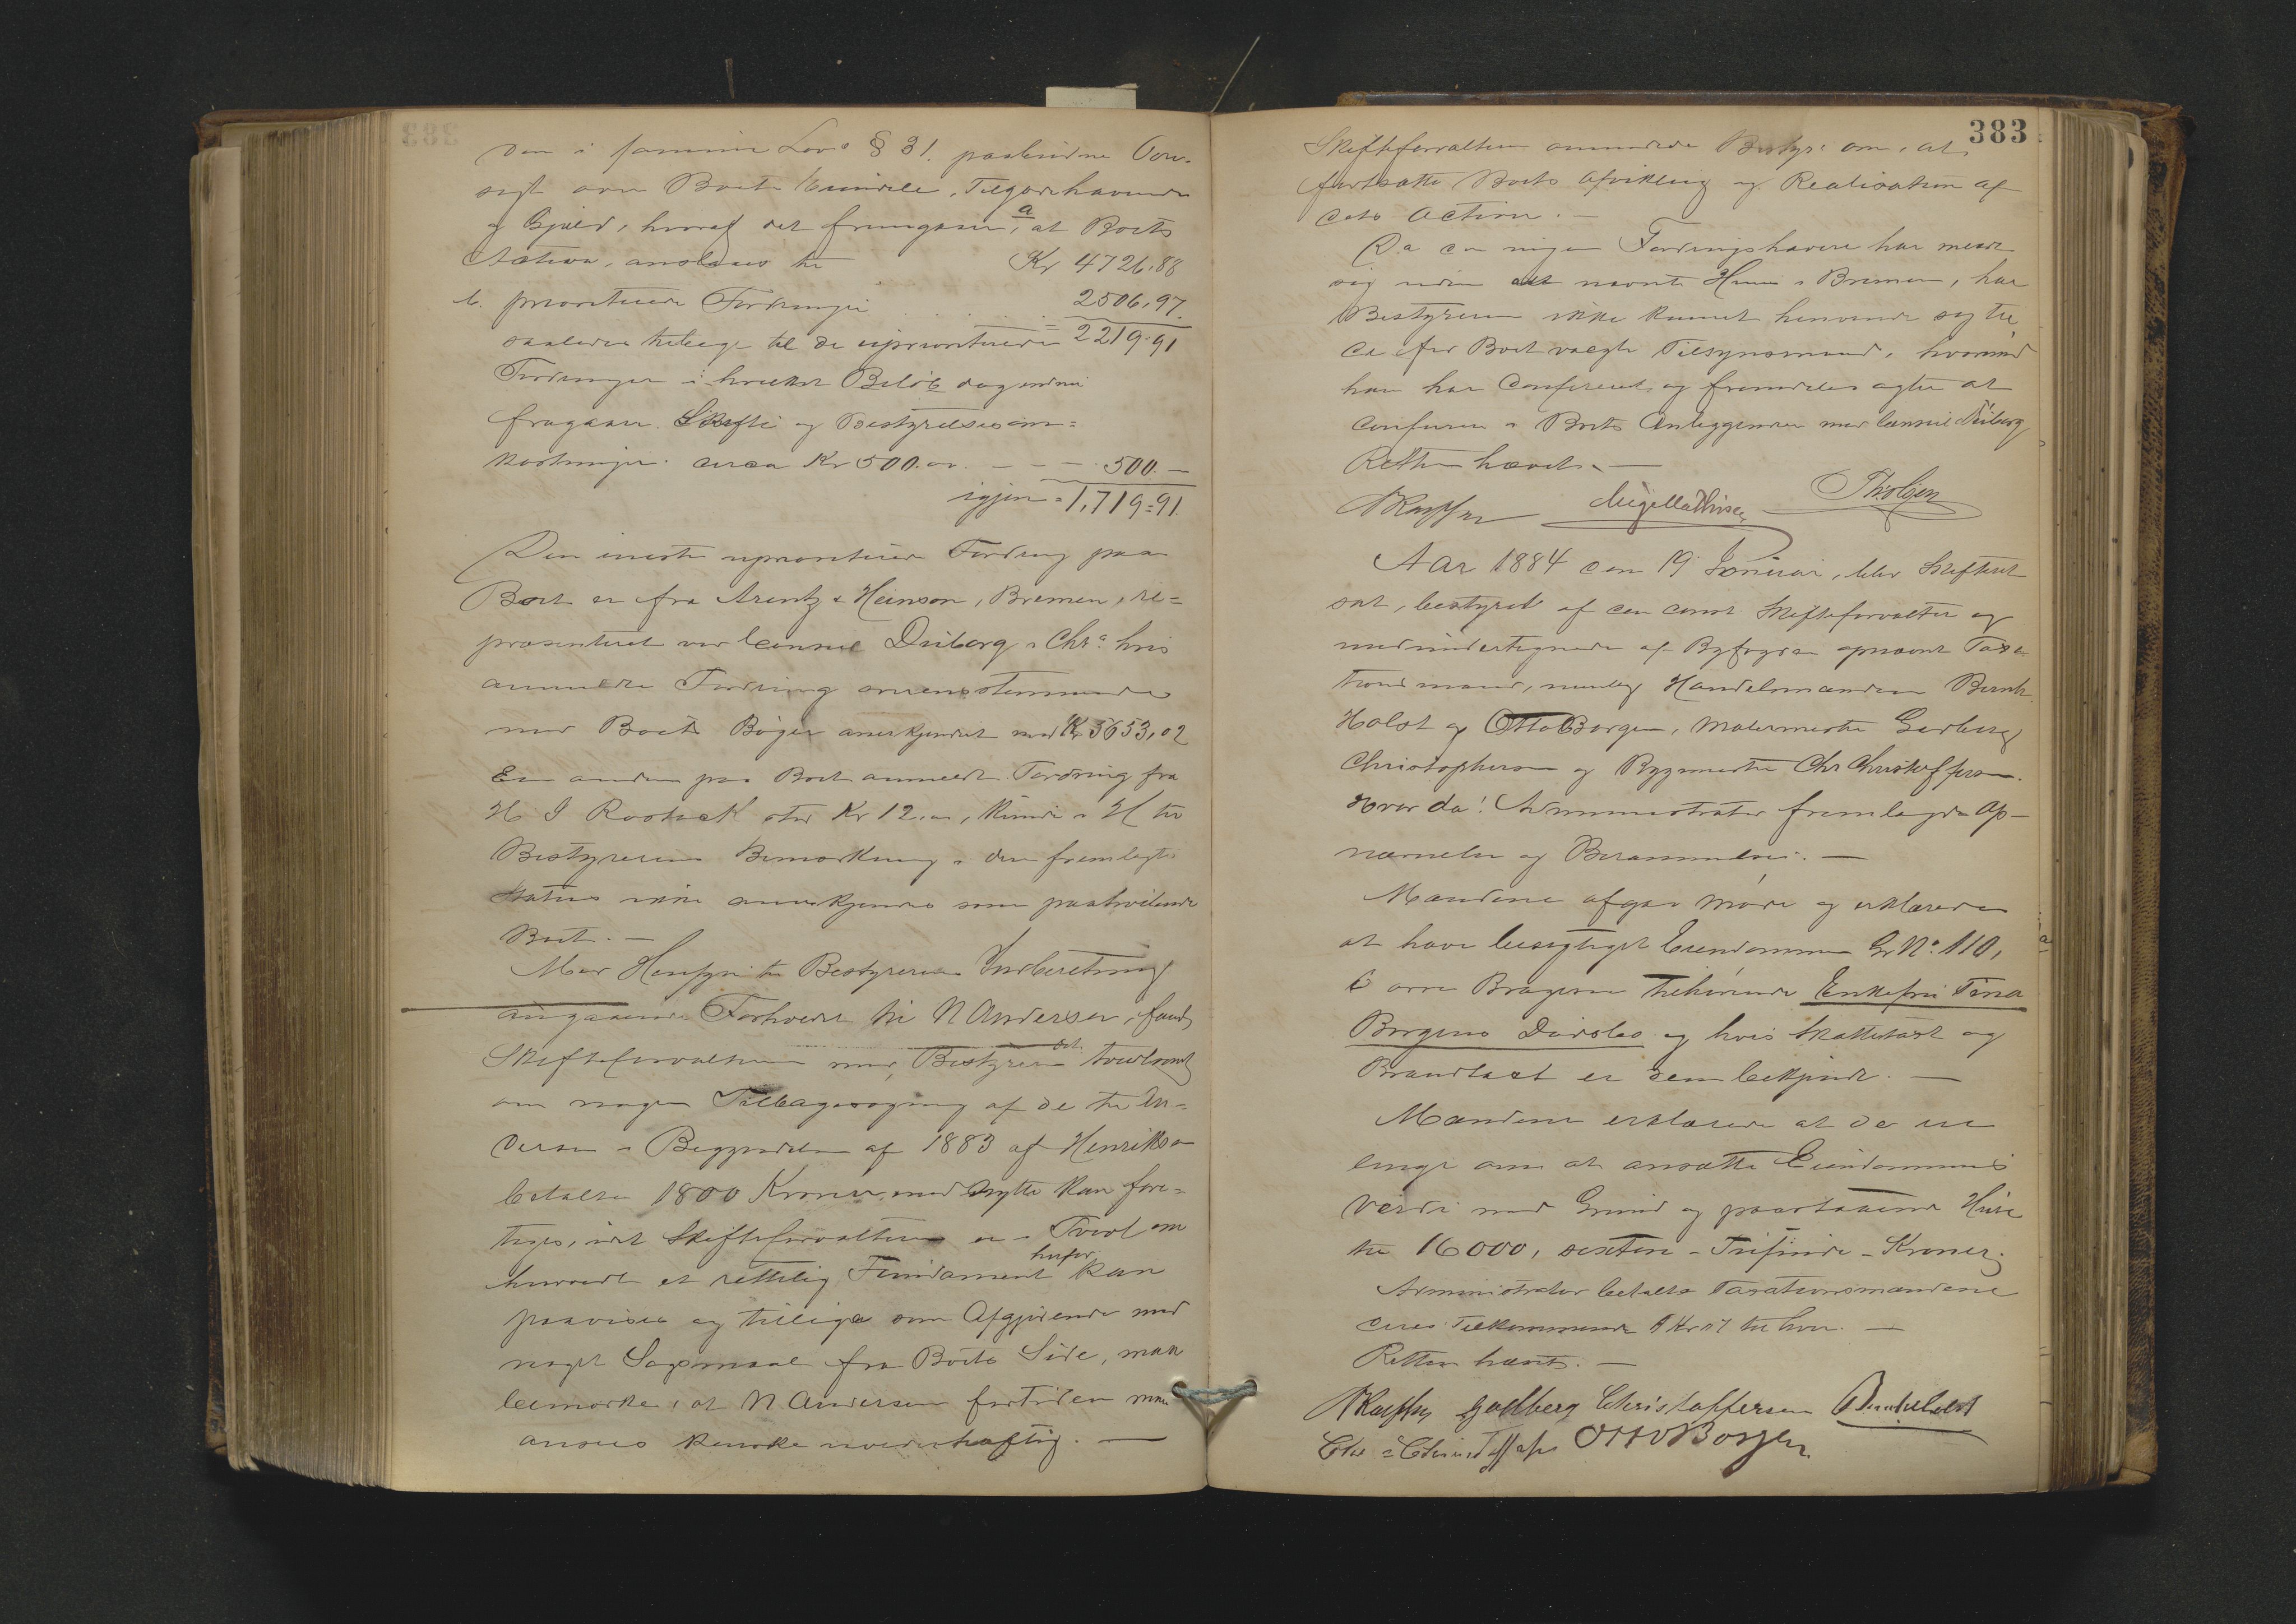 den i samme Lovs § 31. paabudne Over-
sigt over Boets Eiendele, Tilgodehavende
og Gjæld, hvoraf det fremgaar, a at Boets
Activa, anslaaes til Kr 4726.88
b. prioriterede Fordringer 2506,97.
saaledes tilbage til de uprioriterede = 2219.91
Fordringer i hvilket Beløb dog endnu
fragaar Skifte og Bestyrelsesom=
kostninger circa Kr 500.00. - - - 500. -
igjen = 1,719=91.
Den eneste uprioriterede Fordring paa
Boet er fra Arentz & Heinson, Bremen, re=
præsenteret ved Consul Duborg i Chr.a hvis
anmeldte Fordring overensstemmende
med Boets Bøger anerkjendtes med Kr 3653,02
En anden paa Boet anmeldt Fordring fra
H. J Rostock stor Kr 12.00, kunde i H til
Bestyrerens Bemærkning i den fremlagte
Status ikke anerkjendes som paahvilende
Boet. —
Med Hensyn til Bestyrerens Indberetning
angaaende Forholdet til N Andersen, fandt
Skifteforvalteren med Bestyreren det tvivlsomt
om nogen Tilbagesøgning af de til An-
dersen i Begyndelsen af 1883 af Henriksen
betalte 1800 Kroner, med Nytte kan fore=
tages, idet Skifteforvalteren er i Tvivl om
hvorvidt et retslig Fundament herfor kan
paavises og tillige som Afgjørende mod
noget Sagsmaal fra Boets Side, maa
bemærkes, at N Andersen fortiden maa
ansees kanske uvederhæftig. —
383
Skifteforvalteren anmodede Bestyr: om, at
fortsætte Boets Afvikling og Realisation af
dets Activa. —
Da der ingen Fordringshavere har meldt
sig uden det nævnte Huus i Bremen, har
Bestyreren ikke kunnet henvende sig til
de for Boet valgte Tilsynsmand, hvorimod
han har confereret og fremdeles agter at
conferere i Boets Anliggender med Consul Duborg
Retten hævet. —
Aar 1884 den 19 Januar, blev Skifteret
sat, bestyret af den const Skifteforvalter og
medundertegnede af Byfogden opnævnte Taxa
tionsmænd, nemlig Handelsmændene Bernh.
Holst og Otto Borgen, Malermester Gudberg
Christophersen og Bygmester Chr Christoffersen.
Hvor da! Administrator fremlagde Op-
nævnelse og Berammelse. —
Mændene afgav Møde og erklærede
at have besigtiget Eiendommen Gr No. 110,
b ovre Bragernæs tilhørende Enkefru Tina
Borgens Dødsbo og hvis Skattetaxt og
Brandtaxt er dem bekjendt. —
Mændene erklærede at de ere
enige om at ansætte Eiendommens
Værdi med Grund og paastaaende Huse
til 16000, sexten - Tusinde - Kroner.
Administrator betalte Taxationsmændene
deres Tilkommende til hver. —
Retten hævet. —
Gudberg Christoffersen Bernh Holst
Chr Christoffersen Otto Borgen